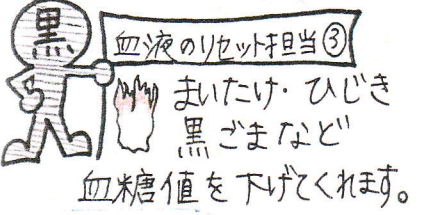 黒
血液のリセット担当③
まいたけ・ひじき
黒ごまなど
血糖値を下げてくれます。